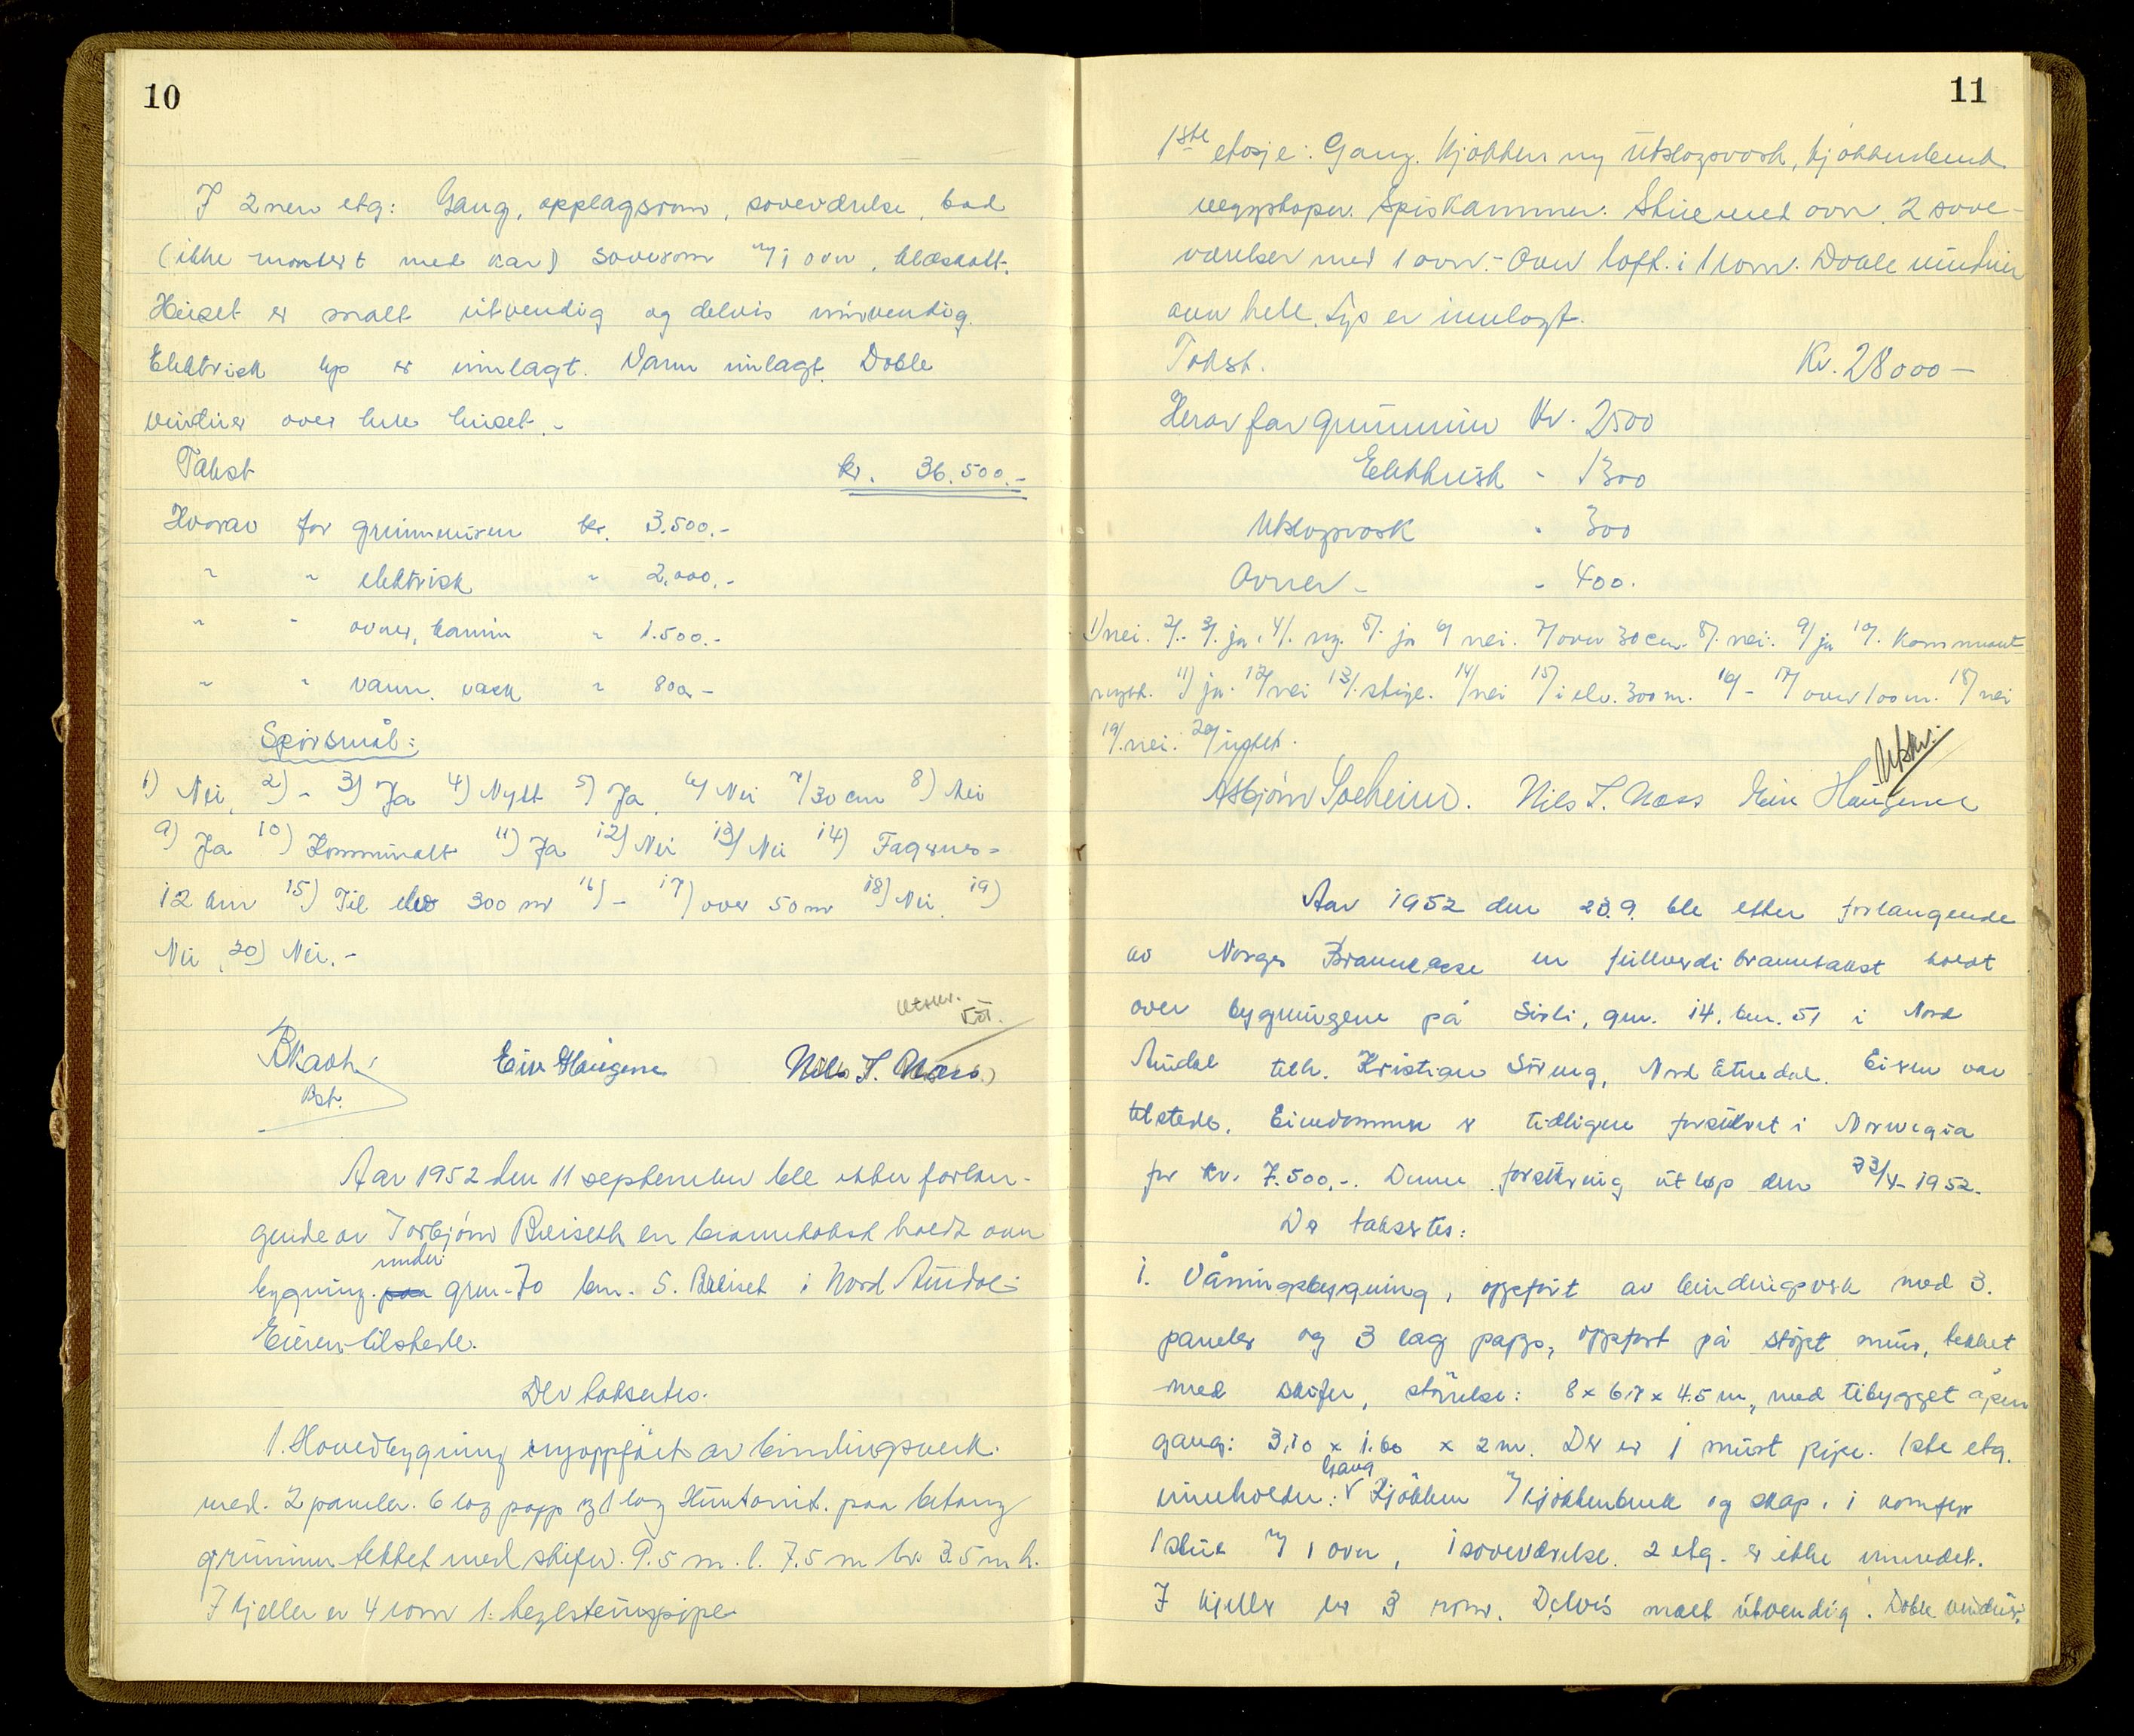 10
I 2nen etg: Gang, opplagsrom, soveværelse, bad
(ikke montert med kar) soverom m/1 ovn, klæskott.
Huset er malt utvendig og delvis innvendig.
Elektrisk lys er innlagt. Vann innlagt. Doble
vinduer over hele huset.-
Takst kr. 36.500.-
Hvorav for grunnmuren kr. 3.500.-
" " elektrisk " 2.000.-
" " ovner, kamin " 1.500.-
" " vann, vask " 800.-
Spörsmål:
1) Nei, 2) - 3) Ja 4) Nytt 5) Ja 6) Nei 7) 30 cm 8) Nei
9) Ja 10) Kommunalt 11) Ja 12) Nei 13) Nei 14) Fagernes-
12 km 15) Til elv 300 m 16) - 17) over 50 m 18) Nei, 19)
Nei, 20) Nei.-
Utskr.
Eir Haugene Nils T. Næss
Bst.
Aar 1952 den 11 september ble etter forlan-
gende av Torbjörn Breiseth en branntakst holdt over
under
bygning. paa grn. 70 brn. 5. Breiset i Nord Aurdal
Eieren tilstede.
Der taksertes.
1. Hovedbygning nyoppfört av bindingsverk.
med. 2 paneler. 6 lag papp og 1 lag Huntonit. paa betong
grunmur tekket med skifer. 9.5 m. l. 7.5 m br. 3.5 m h.
I kjeller er 4 rom 1. teglsteinspipe
11
1ste etasje: Gang. Kjökken m/ Utslagsvask, kjökkenbenk
veggskaper. Spiskammer. Stue med ovn. 2 sove-
værelser med 1 ovn.- Over loft. i 1 rom. Doble vinduer
over hele. Lys er innlagt.
Takst. Kr. 28000-
Herav for grunmur Kr. 2500
Elektrisk - 1300
Utslagsvask - 300
Ovner - - 400.
1) nei. 2/. - 3/. ja. 4/. ny. 5/. ja 6/ nei. 7/ over 30 cm. 8/. nei. 9/ ja 10/. Kommunalt
11) ja. 12/ nei 13/. stige. 14/ nei 15/ i elv. 300 m. 16/ - 17/ over 100 m. 18/ nei
19/. nei. 20/
Utskr.
Asbjörn Solheim. Nils T. Næss Eir Haugene
Aar 1952 den 23.9. ble etter forlangende
av Norges Brannkasse en fullverdi branntakst holdt
over bygningene på Sirli, gnr. 14, bnr. 51 i Nord
Aurdal tilh. Kristian Söreng, Nord Etnedal. Eieren var
tilstede. Eiendommen er tidligere forsikret i Norwegia
for kr. 7.500.-. Denne forsikring utløp den 23/4- 1952.
Der taksertes:
1. Våningsbygning, oppfört av bindingsverk med 3.
paneler og 3 lag papp, oppfört på stöpt mur, tekket
med skifer, störrelse: 8 x 6,7 x 4.5 m, med tilbygget åpen
gang: 3,10 x 1.60 x 2 m. Der er 1 murt pipe. 1ste etg.
Gang
inneholder: V Kjökken m/kjökkenbenk og skap, 1 komfyr
1 stue m/ 1 ovn, 1 soveværelse. 2 etg. er ikke innredet.
I kjeller er 3 rom. Delvis malt utvendig. Doble vinduer.